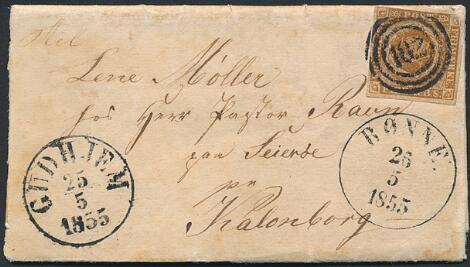 Lene Møller
hos Herr Pastor Ravn
paa Seierøe
pr
Kalonborg
GUDHJEM
25
5
1855
RØNNE.
26
5
1855